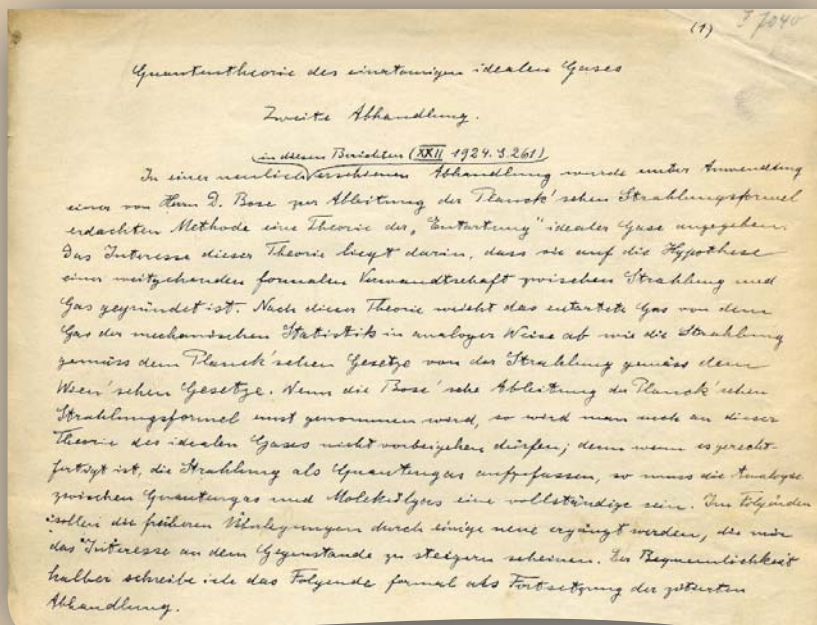 (1) J 7040
Quantentheorie des einatomigen idealen Gases
Zweite Abhandlung.
in diesen Berichten (XXII 1924. S. 261)
In einer neulich erschienen Abhandlung wurde unter Anwendung
einer von Herrn D. Bose zur Ableitung der Planck'schen Strahlungsformel
erdachten Methode eine Theorie der „Entartung" idealer Gase angegeben.
Das Interesse dieser Theorie liegt darin, dass sie auf die Hypothese
einer weitgehenden formalen Verwandtschaft zwischen Strahlung und
Gas gegründet ist. Nach dieser Theorie weicht das entartete Gas von dem
Gas der mechanischen Statistik in analoger Weise ab wie die Strahlung
gemäss dem Planck'schen Gesetze von der Strahlung gemäss dem
Wien'schen Gesetze. Wenn die Bose'sche Ableitung der Planck'schen
Strahlungsformel ernst genommen wird, so wird man auch an dieser
Theorie des idealen Gases nicht vorbeigehen dürfen; denn wenn es gerecht-
fertigt ist, die Strahlung als Quantengas aufzufassen, so muss die Analogie
zwischen Quantengas und Molekülgas eine vollständige sein. Im Folgenden
sollen die früheren Überlegungen durch einige neue ergänzt werden, die mir
das Interesse an dem Gegenstande zu steigern scheinen. Der Bequemlichkeit
halber schreibe ich das Folgende formal als Fortsetzung der zitierten
Abhandlung.